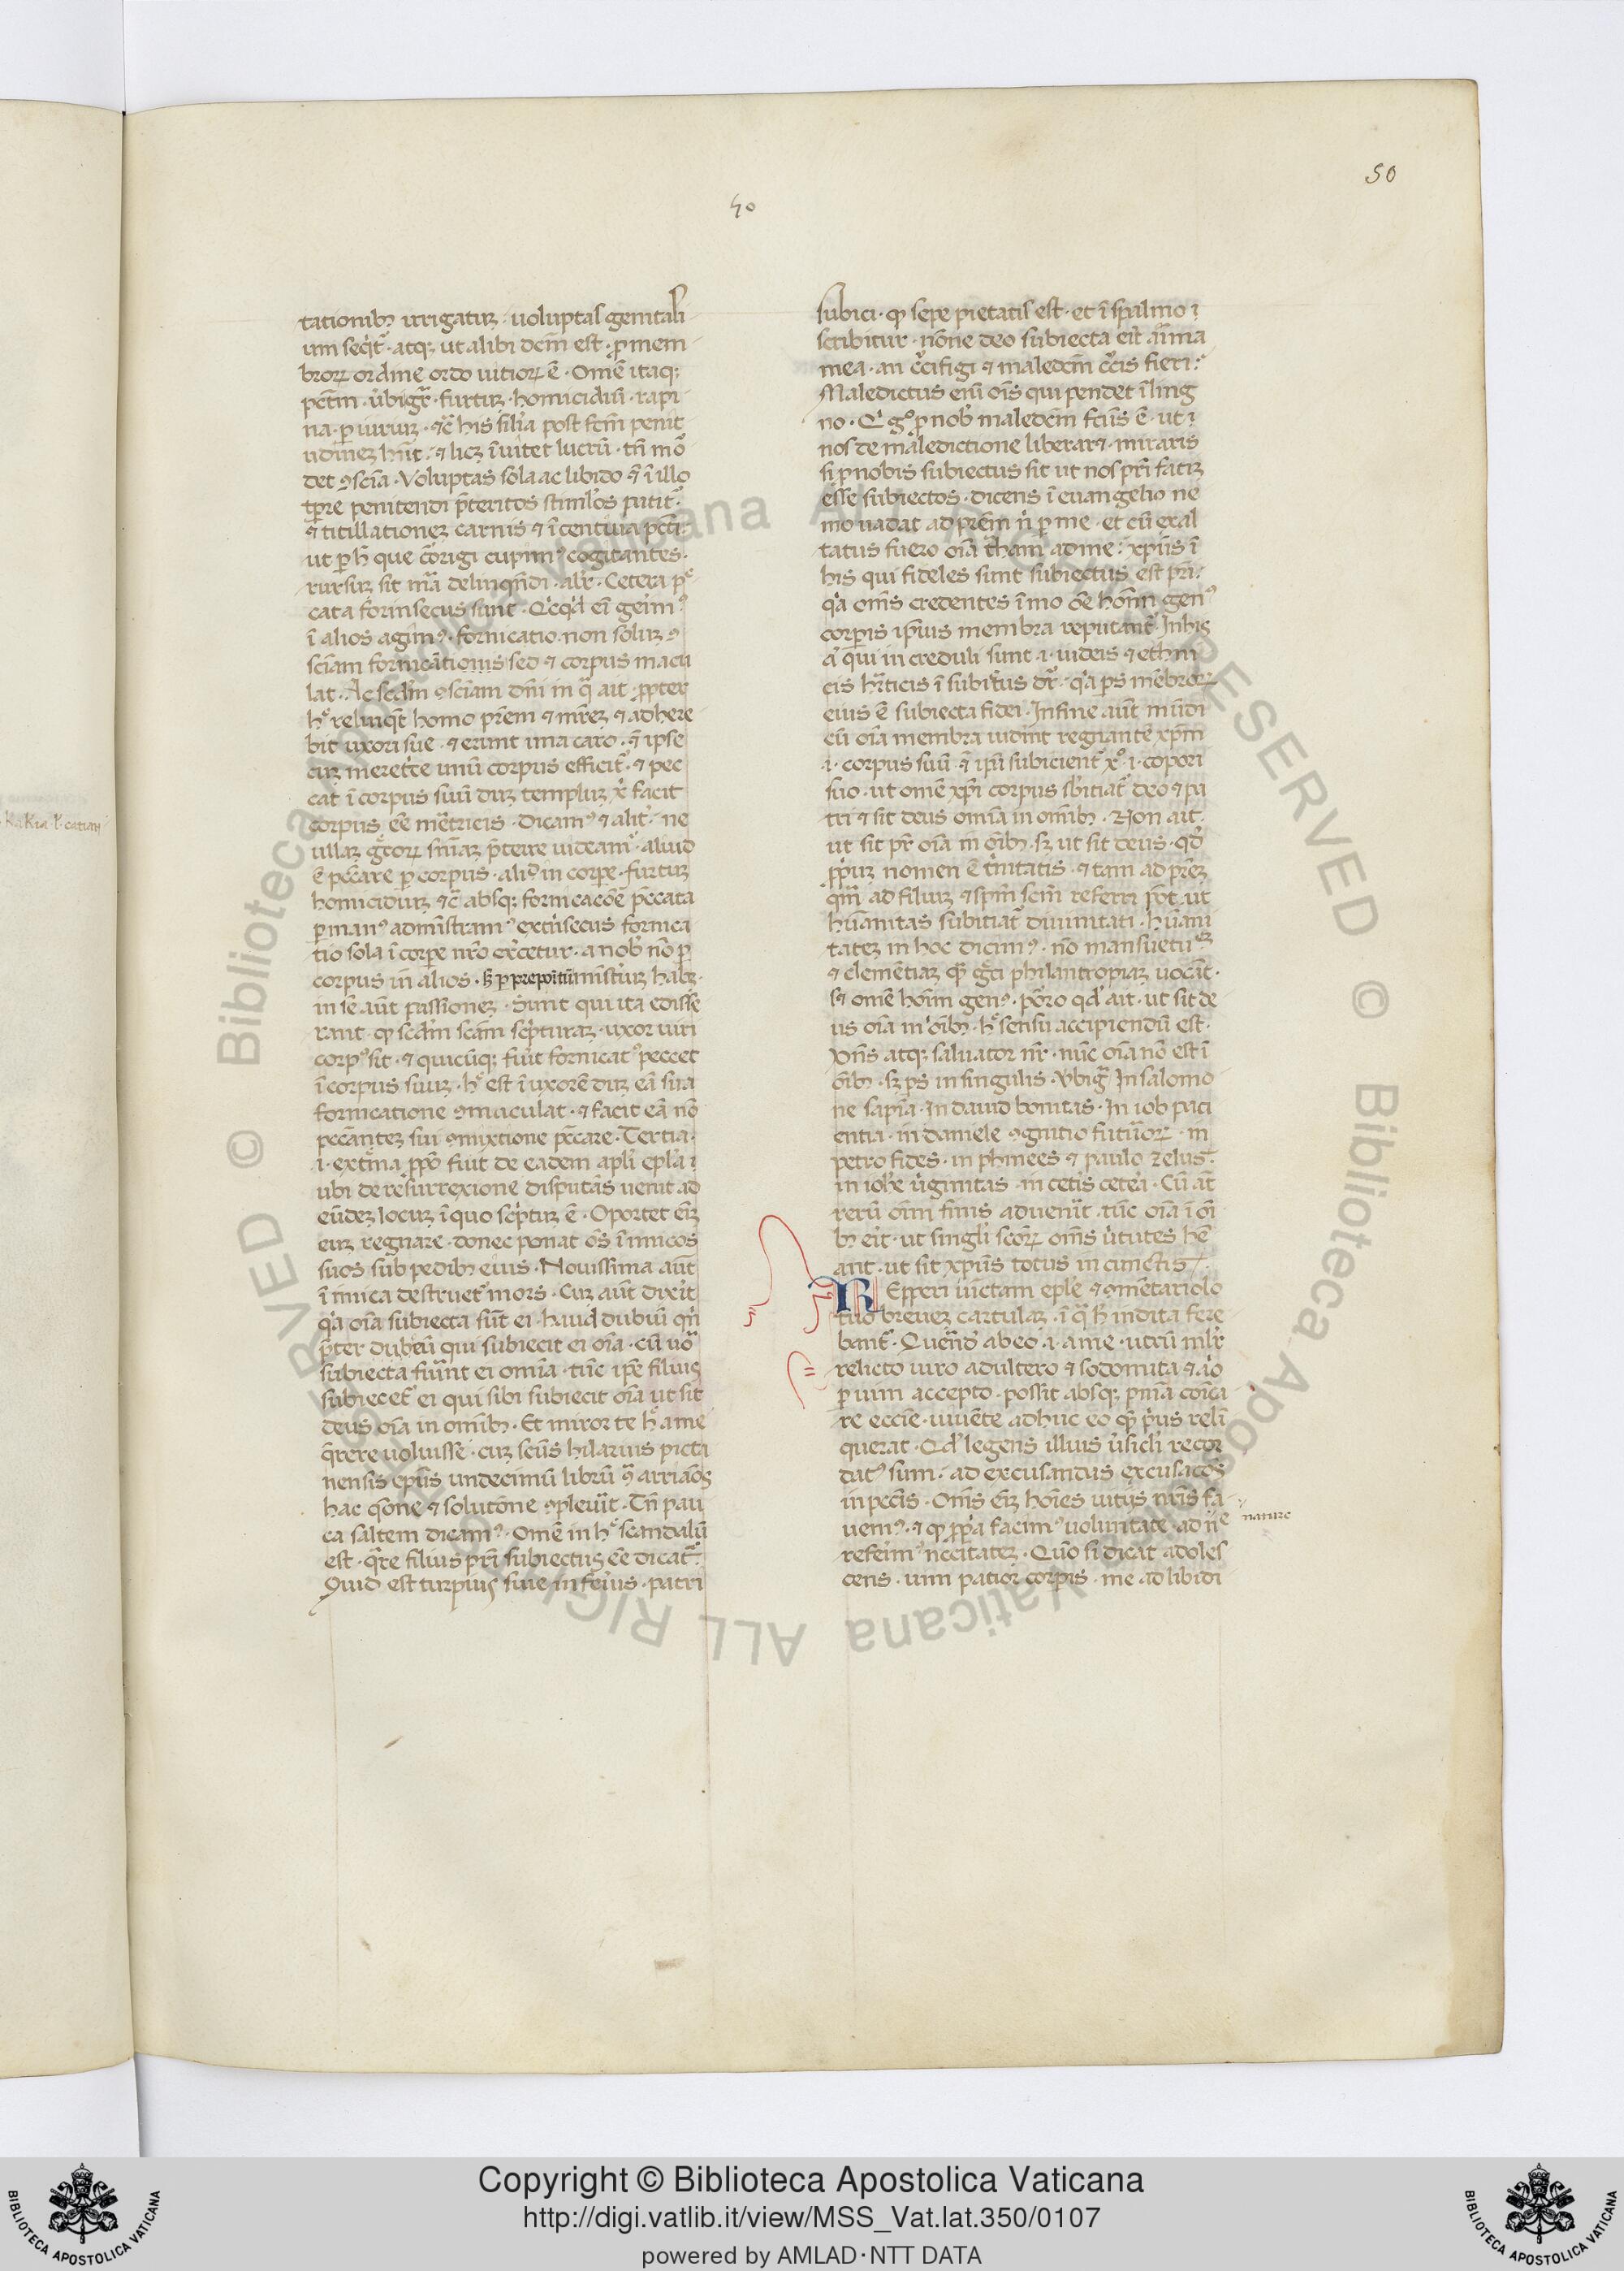 50
40
tationibꝫ irrigatur. uoluptas genitali
um seq̄t᷑. atqꝫ ut alibi dc̄m est. ꝓ mem
broꝝ ordine ordo uitioꝝ ē. Om̄e itaqꝫ
pctm̄. ubigr̄. furtuꝫ. homicidiū. rapi
na. ꝑiuriuꝫ. ⁊c̄ his sil̓ia post fc̄m penit
udineꝫ hn̄t. ⁊ licꝫ īuitet lucrū. tn̄ mō
det ꝯscīa. Voluptas sola ac libido ⁊ ī illo
tp̄re penitendi p̄teritos stimlos patit᷑.
⁊ titillationeꝫ carnis ⁊ īcentiua pcc̄i.
ut ꝑ h̄ que corrigi cupimꝰ cogitantes.
rursuꝫ sit mā delinqn̄di. alr̄. Cetera pc̄
cata forinsecus sunt. Qicqd̓ eī gerimꝰ
ī alios agimꝰ. fornicatio non soluꝫ ꝯ
sciam fornicationis sed ⁊ corpus macu
lat. Ac scdm̄ ꝯsciam dn̄i in q̄ ait. ꝓpter
hͦ relinqt̄ homo pr̄em ⁊ mr̄eꝫ ⁊ adhere
bit uxori sue. ⁊ erunt una caro. ⁊ ipse
cuꝫ meret̓ce unū corpus efficit᷑. ⁊ pec
cat ī corpus suū duꝫ templuꝫ xp̄i facit
corpus eē met̄ricis. Dicamꝰ ⁊ alit̓. ne
ullaꝫ gͨcoꝝ sn̄iaꝫ p̄terire uideamr̄. aliud
ē pccāre ꝑ corpus. alid̓ in corpe. furtuꝫ
homicidiuꝫ ⁊c̄ absqꝫ fornicacōe pc̄cata
ꝑ manꝰ administramꝰ extrīsecus. fornica
tio sola ī corpe nr̄o excetur. a nob̓ nō ꝑ
corpus in alios. sꝫ ꝑ prepoitū mīst̓iuꝫ habꝫ.
in sē aut̄ passioneꝫ. Sunt qui ita edisse
rant. ꝙ scdm̄ scam̄ sc̓pturaꝫ. uxor uiri
corpꝰ sit. ⁊ quicūqꝫ fūit fornicatꝰ peccet
ī corpus suuꝫ. hͦ est ī uxorē duꝫ eā sua
fornicatione ꝯmaculat. ⁊ facit eā nō
pecc̄anteꝫ sui ꝯmixtione pc̄care. Tertia.
i. extͤma ꝓpō fuit de eadem apl̓i epl̓a ⁊
ubi de resurrexione disputās uenit ad
eūdeꝫ locuꝫ ī quo sc̓ptuꝫ ē. Oportet eīꝫ
eum regnare. donec ponat oēs īimicos
suos sub pedibꝫ eius. Nouissima aut̄
īimica destruet᷑ mors. Cuꝫ aut̄ dix̓it
q̓a oīa subiecta sūt ei. haud dubiū qn̄
p̄ter dubiū qui subiecit ei oīa. cū uͦ
subiecta fiūnt ei omīa. tūc ipē filius
subiecet᷑ ei qui sibi subiecit oīa ut sit
deus oīa in omībꝫ. Et miror te hͦ a me
q̄rere uoluisse. cuꝫ scūs hilarius picta
nensis epūs undecimū librū ꝯ arrianos
hac qōne ⁊ solutōne ꝯpleuit. Tn̄ pau
ca saltem dicamꝰ. Omē in hͦ scandalū
est. qr̄e filius pr̄i subiectus eē dicat᷑.
Quid est turpius siue inferius. patri
subici. ꝙ sepe pietatis est. et ī spalmo ⁊
scribitur. nōne deo subiecta erit aīma
mea. an cͨcifigi ⁊ maledcm̄ cͨcis fieri.
Maledictus enī oīs qui pendet ī ling
no. Qi gͦ ꝓ nob̓ maledcm̄ fcūs ē. ut ⁊
nos de maledictione liberaret. miraris
si ꝓ nobis subiectus sit ut nos pr̄i faciꝫ
esse subiectos. dicens ī euangelio ne
mo uadat ad pr̄em n̓ ꝑ me. et cū exal
tatus fuero oīa tͣham ad me. xpūs ī
his qui fideles sunt subiectus est pr̄i.
q̓a omēs credentes īmo oē hom̄ genꝰ
corpis ip̄ius membra reputant᷑. In his
a᷑ qui increduli sunt .i. iudeis ⁊ ethni
cis hr̄ticis īsubiectus dr̄. q̓a ps mēbroꝝ
eius ē subiecta fidei. In fine aut̄ mūdi
cū oīa membra uidīnt regnantē xpm̄
.i. corpus suū ⁊ ipi subicient᷑ xͦ .i. copori
suo. ut omē xpi corpus sb̓iciat᷑ deo ⁊ pa
tri ⁊ sit deus omīa in omībꝫ. Non ait.
ut sit pr̄ oīa in oībꝫ. sꝫ ut sit deus. qd̓
ꝓpiuꝫ nomen ē t̓nitatis. ⁊ tam ad pr̄eꝫ
qm̄ ad filiuꝫ ⁊ spm̄ scm̄ referri pōt. ut
humanitas subiciat᷑ diuinitati. humani
tateꝫ in hoc dicimꝰ. nō mansuetuꝫ
⁊ clemētiaꝫ qͣ gͨci philantropiaꝫ uocāt.
sꝫ omē hom̄ genꝰ. porro qd̓ ait. ut sit de
us oīa in oībꝫ. hͦ sensu accipiendū est.
Dn̄s atqꝫ saluator nr̄. nūc oīa nō est ī
oībꝫ. sꝫ ps in singulis. Vbigr̄ In salomo
ne sapiīa. In dauid bonitas. In iob paci
entia. in daniele ꝯgnitio futuroꝝ. in
petro fides. in phinees ⁊ paulo zelus.
in iohe uiginitas. in cetis cetera. Cū at̄
rerū oīm finis aduenīt. tūc oīa ī oī
bꝫ erit. ut singli scoꝝ omēs ùtutes hē
ant. ut sit xpūs totus in cunctis.
REpperi iūctam eple ⁊ ꝯmētariolo
tuo breueꝫ cartulaꝫ. ī q̄ h̄ indita fere
bant᷑. Querēd̓ ab eo .i. a me. utrū mlr̄
relicto uiro adultero ⁊ sodomita ⁊ aͦ
ꝑ uim accepto. possit absqꝫ pnīa coīca
re eccīe. uiuēte adhuc eo qͣ p̓us reli
querat. Qd̓ legens illius ùsicl̓i recor
datꝰ sum. ad excusandas excusacōs
in pecc̄is. Omēs eīꝫ hoīes uitijs nr̄is fa
uemꝰ. ⁊ ꝙ ꝓpa facimꝰ uoluntate. ad ne
nature
referimꝰ nccītateꝫ. Quō si dicat adoles
cens. uim patior corpis. me ad libidi
KaKia .l. catian
Copyright © Biblioteca Apostolica Vaticana
http://digi.vatlib.it/view/MSS_Vat.lat.350/0107
powered by AMLAD·NTT DATA
BIBLIOTECA APOSTOLICA VATICANA
BIBLIOTECA APOSTOLICA VATICANA